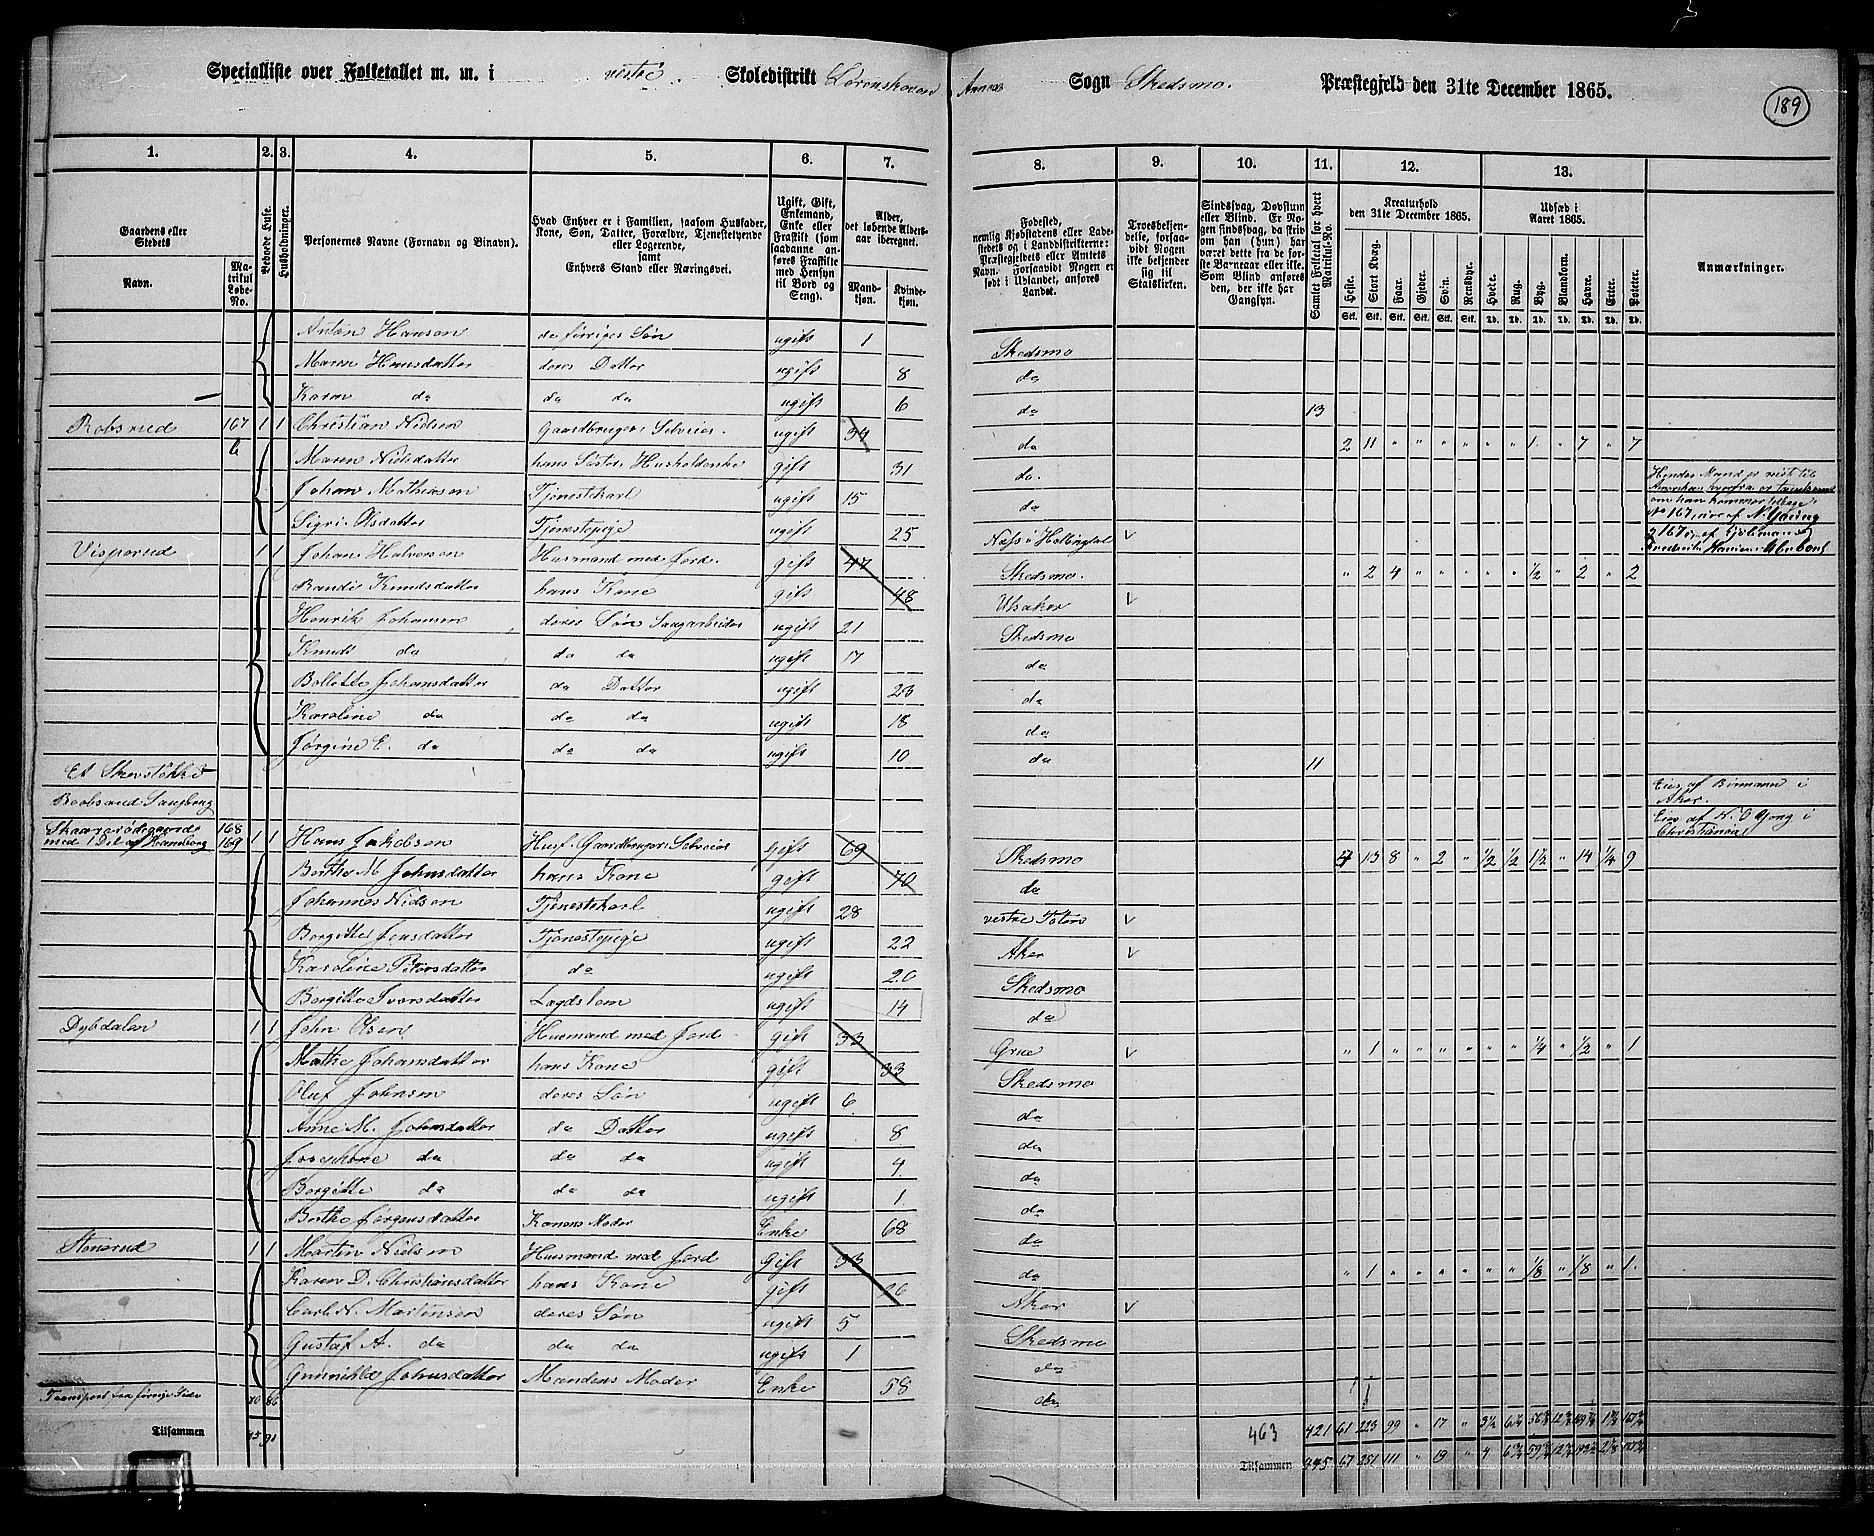 189
Specialliste over Folketallet m. m. i vestre Skoledistrikt Lørenskoven Annex Sogn Skedsmo. Præstegjeld den 31te December 1865.
1. 2. 3. 4. 5. 6. 7. 8. 9. 10. 11. 12. 13.
Gaardens eller Stedets
Navn.
Matrikul Løbe-No.
Beboede Huse.
Husholdninger.
Personernes Navne (Fornavn og Binavn).
Hvad Enhver er i Familien, saasom Husfader, Kone, Søn, Datter, Forældre, Tjenestetyende eller Logerende, samt Enhvers Stand eller Næringsvei.
Ugift, Gift, Enkemand, Enke eller Fraskilt (som saadanne anføres Fraskilte med Hensyn til Bord og Seng).
Alder, det løbende Aldersaar iberegnet.
Mandkjøn. Kvindekjøn.
Fødested, nemlig Kjøbstadens eller Ladestedets og i Landdistrikterne: Præstegjeldets eller Amtets Navn. Forsaavidt Nogen er født i Udlandet, anføres Landet.
Troesbekjendelse, forsaavidt Nogen ikke bekjender sig til Statskirken.
Sindssvag, Døvstum eller Blind. Er Nogen sindssvag, da skrives om han (hun) har været dette fra de første Barneaar eller ikke. Som Blind anføres den, der ikke har Gangsyn.
Samlet Folketal for hvert Matrikul-No.
Kreaturhold den 31te December 1865.
Heste. Stort Kvæg. Faar. Gjeder. Svin. Rensdyr.
Udsæd i Aaret 1865.
Hvede. Rug. Byg. Blandkorn. Havre. Erter. Poteter.
Anmærkninger.
Anton Hansen de førriges Søn ugift 1 Skedsmo
Maren Hansdatter deres Datter ugift 8 do
Karen do do do ugift 6 do 13
Robsrud 167 1 1 Christian Nielsen Gaardbruger Selveier. ugift 34 do 2 11 " " " " " " 1 " 7 " 7
6 Maren Nielsdatter hans Søster, Husholderske gift 31 do.
Johan Mathiesen Tjenestekarl ugift 15 do
Sigri Olsdatter Tjenestepige ugift 25 Næss i Hallingdal v
Hendes Mand er reist til
Amerika
om han kommer tilbage
Visperud 1 1 Johan Halvorsen Husmand med Jord. gift 47 Skedsmo. " 2 4 " " " " " ½ " 2 " 2
Randi Knudsdatter hans Kone gift 48 Ulsaker v
Henrik Johansen deres Søn Saugarbeider ugift 21 Skedsmo
Knud do do do ugift 17 do
Bollette Johansdatter do Datter ugift 23 do
Karoline do do do ugift 18 do
Jørgine E. do do do ugift 10 do 11
Et Skovstøkke Eies af Birmann i Aker.
Robsrud Saugbrug Eies af N. O Young i Christiania
Skaarerødegaarde 168
med 1 Del af Strandborg 169 1 1 Hans Jakobsen Husf. Gaardbruger Selveier gift 69 Skedsmo 4 13 8 " 2 " ½ ½ 1½ " 14 ¼ 9
Berthe M Johnsdatter hans Kone gift 70 do
Johannes Nielsen Tjenestekarl ugift 28 vestre Toten v
Bergitte Jensdatter Tjenestepige ugift 22 Aker v
Karoline Petersdatter do ugift 20 Skedsmo
Bergitte Iversdatter Lægdslem ugift 14 do
Dybdalen 1 1 John Olsen Husmand med Jord gift 33 Grue v " 1 " " " " " " ¼ " ½ " 1
Mathe Johansdatter hans Kone gift 33 Skedsmo
Oluf Johnsen deres Søn ugift 6 do
Anne M. Johnsdatter do Datter ugift 8 do
Josephine do do do ugift 4 do
Bergitte do do do ugift 1 do
Berthe Jørgensdatter Konens Moder Enke 68 do
Stenerud 1 1 Martin Nielsen Husmand med Jord gift 33 do " 1 " " " " " " ⅛ " ⅛ " 1
Karen D. Christiansdatter hans Kone gift Aker v
Carl N. Martinsen deres Søn ugift 5 Skedsmo
Gustaf A. do do do ugift 1 do
Gunnild Johnsdatter Mandens Moder Enke 58 do
Transport fra forrige Side 86 463 421 61 223 99 " 17 "
Tilsammen Tilsammen 445 67 251 111 " 19 " 4